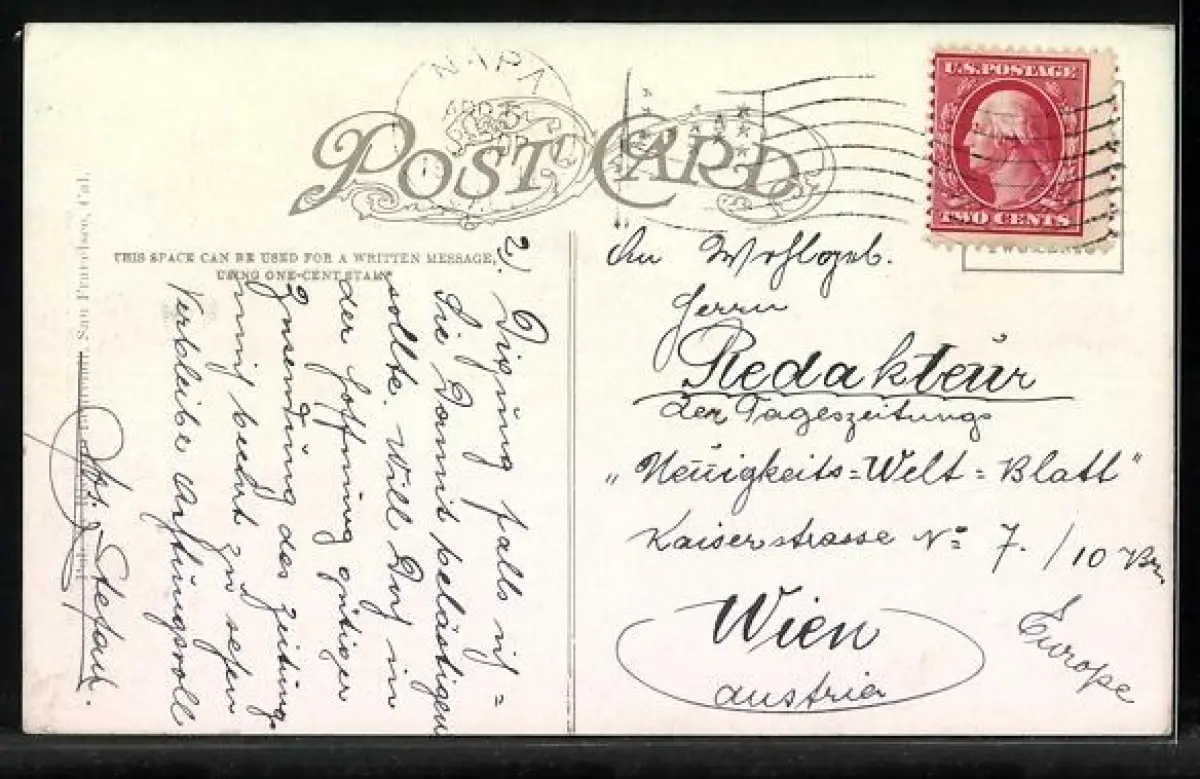 NAPA
APR 5
POST CARD
U.S. POSTAGE
TWO CENTS
THIS SPACE CAN BE USED FOR A WRITTEN MESSAGE,
USING ONE-CENT STAMP
San Francisco, Cal.
2).
falls ich
Sie Damit belästigen
sollte. Will Doch in
der Hoffnung gütiger
Zusendung des Zeitung.
mich beehrt zu sehen
Verbleibe Achtungsvoll
Jos. Stefan.
An Wohlgeb.
Herrn
Redakteur
der Tageszeitungs
"Neuigkeits=Welt=Blatt"
Kaiserstrasse No 7. /10
Wien
Austria
Europe